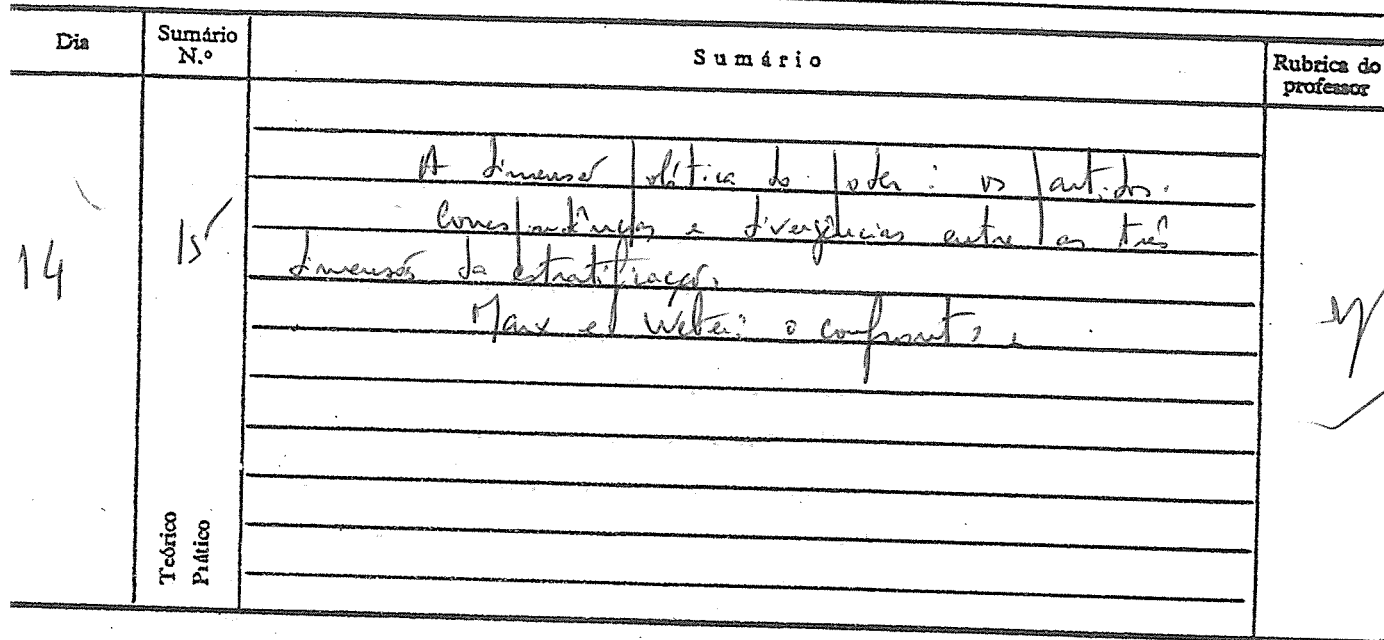 Dia
Sumário N.º
Sumário
Rubrica do professor
14
15
A dimensão política do poder: os partidos.
Correspondências e divergências entre as três
dimensões da estratificação.
Marx e Weber: o confronto
Teórico
Prático